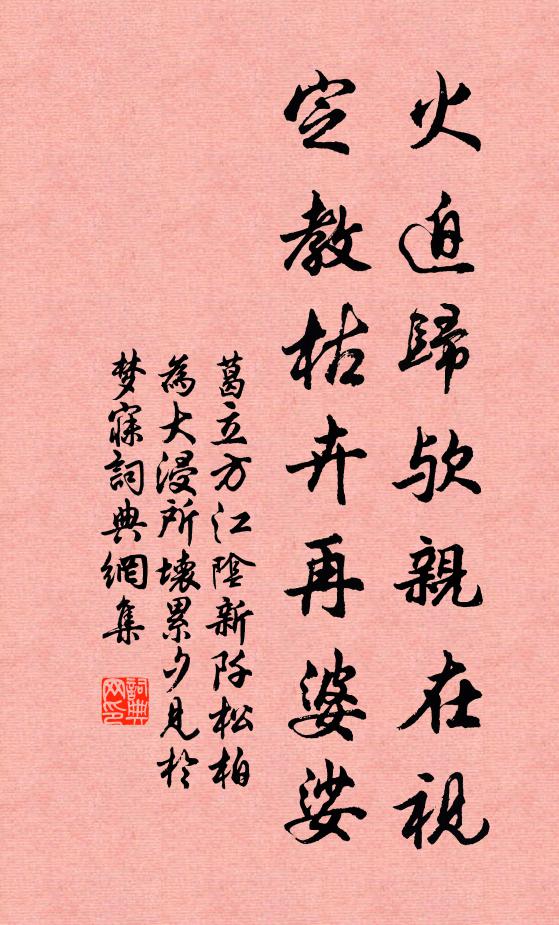 火迫歸欤親在視
定教枯卉再婆娑
葛立方江陰新阡松柏
為大浸所壞累夕見於
梦寐詞典網集
詞典网印